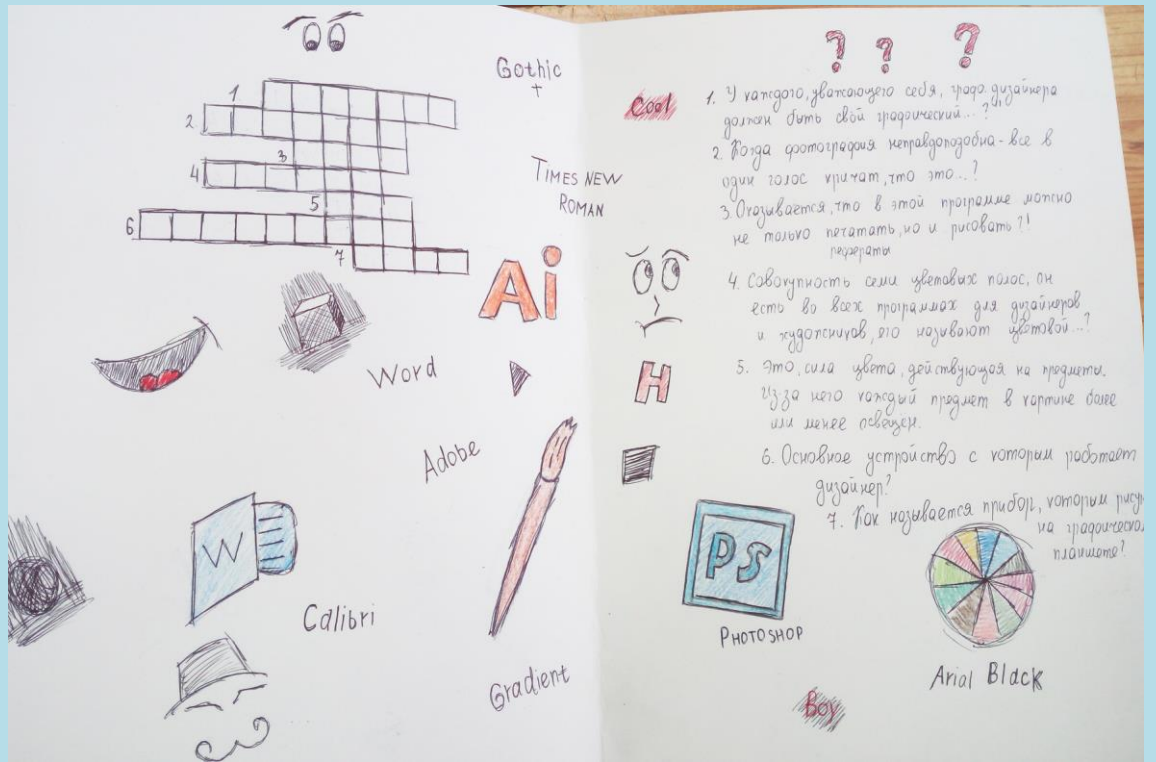 1
2
3
4
5
6
7
Gothic
TIMES NEW
ROMAN
Ai
Word
Adobe
W
Calibri
Gradient
? ? ?
Cool
1. У каждого, уважающего себя, граф. дизайнера
должен быть свой графический...?
2. Когда фотография неправдоподобна - все в
один голос кричат, что это...?
3. Оказывается, что в этой программе можно
не только печатать, но и рисовать?!
рефераты
4. Совокупность семи цветовых полос, он
есть во всех программах для дизайнеров
и художников, его называют цветовой...?
H
5. Это, сила цвета, действующая на предметы.
Из-за него каждый предмет в картине более
или менее освещён.
6. Основное устройство с которым работает
дизайнер?
7. Как называется прибор, которым рису
на графическо
планшете?
PS
PHOTOSHOP
Arial Black
Boy